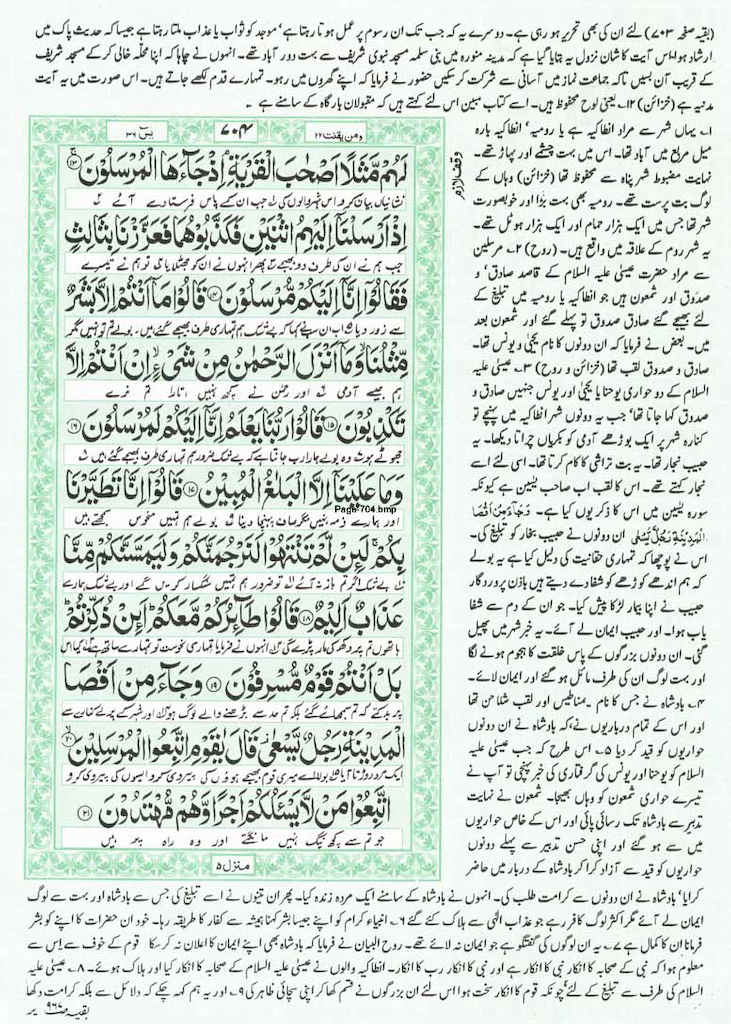 (بقیہ صفحہ ۷۰۳) لئے ان کی بھی تحریر ہو رہی ہے۔ دوسرے یہ کہ جب تک ان رسوم پر عمل ہوتا رہتا ہے' موجد کو ثواب یا عذاب ملتا رہتا ہے جیسا کہ حدیث پاک میں
ارشاد ہوا' اس آیت کا شان نزول یہ بتایا گیا ہے کہ مدینہ منورہ میں بنی سلمہ مسجد نبوی شریف سے بہت دور آباد تھے۔ انہوں نے چاہا کہ اپنا محلہ خالی کر کے مسجد شریف
کے قریب آن بسیں تاکہ جماعت نماز میں آسانی سے شرکت کر سکیں حضور نے فرمایا کہ اپنے گھروں میں رہو۔ تمہارے قدم لکھے جاتے ہیں۔ اس صورت میں یہ آیت
مدنیہ ہے (خزائن) ۱۲۔ یعنی لوح محفوظ میں۔ اسے کتاب مبین اس لئے کہتے ہیں کہ مقبولان بارگاہ کے سامنے ہے ۔
ومن یقنت ۲۲
۷۰۴
یٰسٓ ۳۶
لَهُمْ مَّثَلًا اَصْحٰبَ الْقَرْيَةِ ۘ اِذْ جَآءَهَا الْمُرْسَلُوْنَ ۱۳
نشانیاں بیان کرو اس شہر والوں کی جب ان کے پاس فرستادے آئے
اِذْ اَرْسَلْنَاۤ اِلَيْهِمُ اثْنَيْنِ فَكَذَّبُوْهُمَا فَعَزَّزْنَا بِثَالِثٍ
جب ہم نے ان کی طرف دو بھیجے پھر انہوں نے ان کو جھٹلایا تو ہم نے تیسرے
فَقَالُوْۤا اِنَّاۤ اِلَيْكُمْ مُّرْسَلُوْنَ ۱۴ قَالُوْا مَاۤ اَنْتُمْ اِلَّا بَشَرٌ
سے زور دیا اب ان سب نے کہا کہ بے شک ہم تمہاری طرف بھیجے گئے ہیں۔ بولے تم تو نہیں مگر
مِّثْلُنَا ۙ وَمَاۤ اَنْزَلَ الرَّحْمٰنُ مِنْ شَیْءٍ ۙ اِنْ اَنْتُمْ اِلَّا
ہم جیسے آدمی اور رحمٰن نے کچھ نہیں اتارا تم نرے
تَكْذِبُوْنَ ۱۵ قَالُوْا رَبُّنَا يَعْلَمُ اِنَّاۤ اِلَيْكُمْ لَمُرْسَلُوْنَ ۱۶
جھوٹے ہو وہ بولے ہمارا رب جانتا ہے کہ بے شک ضرور ہم تمہاری طرف بھیجے گئے ہیں
وَمَا عَلَيْنَاۤ اِلَّا الْبَلٰغُ الْمُبِيْنُ ۱۷ قَالُوْۤا اِنَّا تَطَيَّرْنَا
Page 704.bmp
اور ہمارے ذمہ نہیں مگر صاف پہنچا دینا بولے ہم تمہیں منحوس سمجھتے ہیں
بِكُمْ ۚ لَىِٕنْ لَّمْ تَنْتَهُوْا لَنَرْجُمَنَّكُمْ وَلَيَمَسَّنَّكُمْ مِّنَّا
بے شک اگر تم باز نہ آئے تو ضرور ہم تمہیں سنگسار کریں گے اور بے شک ہمارے
عَذَابٌ اَلِيْمٌ ۱۸ قَالُوْا طَآىِٕرُكُمْ مَّعَكُمْ ؕ اَىِٕنْ ذُكِّرْتُمْ ؕ
ہاتھوں تم پر دکھ کی مار پڑے گی انہوں نے فرمایا تمہاری نحوست تو تمہارے ساتھ ہے کیا اس
بَلْ اَنْتُمْ قَوْمٌ مُّسْرِفُوْنَ ۱۹ وَجَآءَ مِنْ اَقْصَا
پر بدکتے ہو کہ تم سمجھائے گئے بلکہ تم حد سے بڑھنے والے لوگ ہو اور شہر کے پرلے کنارے سے
الْمَدِيْنَةِ رَجُلٌ يَّسْعٰى قَالَ يٰقَوْمِ اتَّبِعُوا الْمُرْسَلِيْنَ ۲۰
ایک مرد دوڑتا آیا بولا اے میری قوم بھیجے ہوؤں کی پیروی کرو ایسوں کی پیروی کرو
اتَّبِعُوْا مَنْ لَّا يَسْـَٔلُكُمْ اَجْرًا وَّهُمْ مُّهْتَدُوْنَ ۲۱
جو تم سے کچھ نیگ نہیں مانگتے اور وہ راہ پر ہیں
منزل ۵
وقف لازم
۱۔ یہاں شہر سے مراد انطاکیہ ہے یا رومیہ' انطاکیہ بارہ
میل مربع میں آباد تھا۔ اس میں بہت چشمے اور پہاڑ تھے۔
نہایت مضبوط شہر پناہ سے محفوظ تھا (خزائن) وہاں کے
لوگ بت پرست تھے۔ رومیہ بھی بہت بڑا اور خوبصورت
شہر تھا جس میں ایک ہزار حمام اور ایک ہزار ہوٹل تھے۔
یہ شہر روم کے علاقہ میں واقع ہیں۔ (روح) ۲۔ مرسلین
سے مراد حضرت عیسیٰ علیہ السلام کے قاصد صادق' و
صدوق اور شمعون ہیں جو انطاکیہ یا رومیہ میں تبلیغ کے
لئے بھیجے گئے صادق صدوق تو پہلے گئے اور شمعون بعد
میں۔ بعض نے فرمایا کہ ان دونوں کا نام یحییٰ و یونس تھا۔
صادق و صدوق لقب تھا (خزائن و روح) ۳۔ عیسیٰ علیہ
السلام کے دو حواری یوحنا یا یحییٰ اور یونس جنہیں صادق و
صدوق کہا جاتا تھا' جب یہ دونوں شہر انطاکیہ میں پہنچے تو
کنارہ شہر پر ایک بوڑھے آدمی کو بکریاں چراتا دیکھا۔ یہ
حبیب نجار تھا۔ یہ بت تراشی کا کام کرتا تھا۔ اسی لئے اسے
نجار کہتے تھے۔ اس کا لقب اب صاحب یسین ہے کیونکہ
سورہ یسین میں اس کا ذکر یوں کیا ہے۔ وَجَآءَ مِنْ اَقْصَا
الْمَدِيْنَةِ رَجُلٌ يَّسْعٰى ان دونوں نے حبیب نجار کو تبلیغ کی۔
اس نے پوچھا کہ تمہاری حقانیت کی دلیل کیا ہے یہ بولے
کہ ہم اندھے کوڑھے کو شفا دے دیتے ہیں باذن پروردگار
حبیب نے اپنا بیمار لڑکا پیش کیا۔ جو ان کے دم سے شفا
یاب ہوا۔ اور حبیب ایمان لے آئے۔ یہ خبر شہر میں پھیل
گئی۔ ان دونوں بزرگوں کے پاس خلقت کا ہجوم ہونے لگا
اور بہت لوگ ان کی طرف مائل ہو گئے اور ایمان لائے۔
۴۔ بادشاہ نے جس کا نام مناطیس اور لقب شلاحن تھا
اور اس کے تمام درباریوں نے' کہ بادشاہ نے ان دونوں
حواریوں کو قید کر دیا ۵۔ اس طرح کہ جب عیسیٰ علیہ
السلام کو یوحنا اور یونس کی گرفتاری کی خبر پہنچی تو آپ نے
تیسرے حواری شمعون کو وہاں بھیجا۔ شمعون نے نہایت
تدبیر سے بادشاہ تک رسائی پائی اور اس کے خاص حواریوں
میں سے ہو گئے اور اپنی حسن تدبیر سے پہلے دونوں
حواریوں کو قید سے آزاد کرا کر بادشاہ کے دربار میں حاضر
کرایا' بادشاہ نے ان دونوں سے کرامت طلب کی۔ انہوں نے بادشاہ کے سامنے ایک مردہ زندہ کیا۔ پھر ان تینوں نے اسے تبلیغ کی جس سے بادشاہ اور بہت سے لوگ
ایمان لے آئے مگر اکثر لوگ کافر رہے جو عذاب الٰہی سے ہلاک کئے گئے ۶۔ انبیاء کرام کو اپنے جیسا بشر کہنا ہمیشہ سے کفار کا طریقہ رہا۔ خود ان حضرات کا اپنے کو بشر
فرمانا ان کا کمال ہے ۷۔ یہ ان لوگوں کی گفتگو ہے جو ایمان نہ لائے تھے۔ روح البیان نے فرمایا کہ بادشاہ بھی اپنے ایمان کا اعلان نہ کر سکا قوم کے خوف سے اس سے
معلوم ہوا کہ نبی کے صحابہ کا انکار نبی کا انکار ہے اور نبی کا انکار رب کا انکار۔ انطاکیہ والوں نے عیسیٰ علیہ السلام کے صحابہ کا انکار کیا اور ہلاک ہوئے۔ ۸۔ عیسیٰ علیہ
السلام کی طرف سے تبلیغ کے لئے' چونکہ قوم کا انکار سخت ہوا اس لئے ان بزرگوں نے قسم کھا کر اپنی سچائی ظاہر کی ۹۔ اور یہ ہم کہہ چکے کہ دلائل سے بلکہ کرامت دکھا
بقیہ صفحہ ۹۶۷ پر